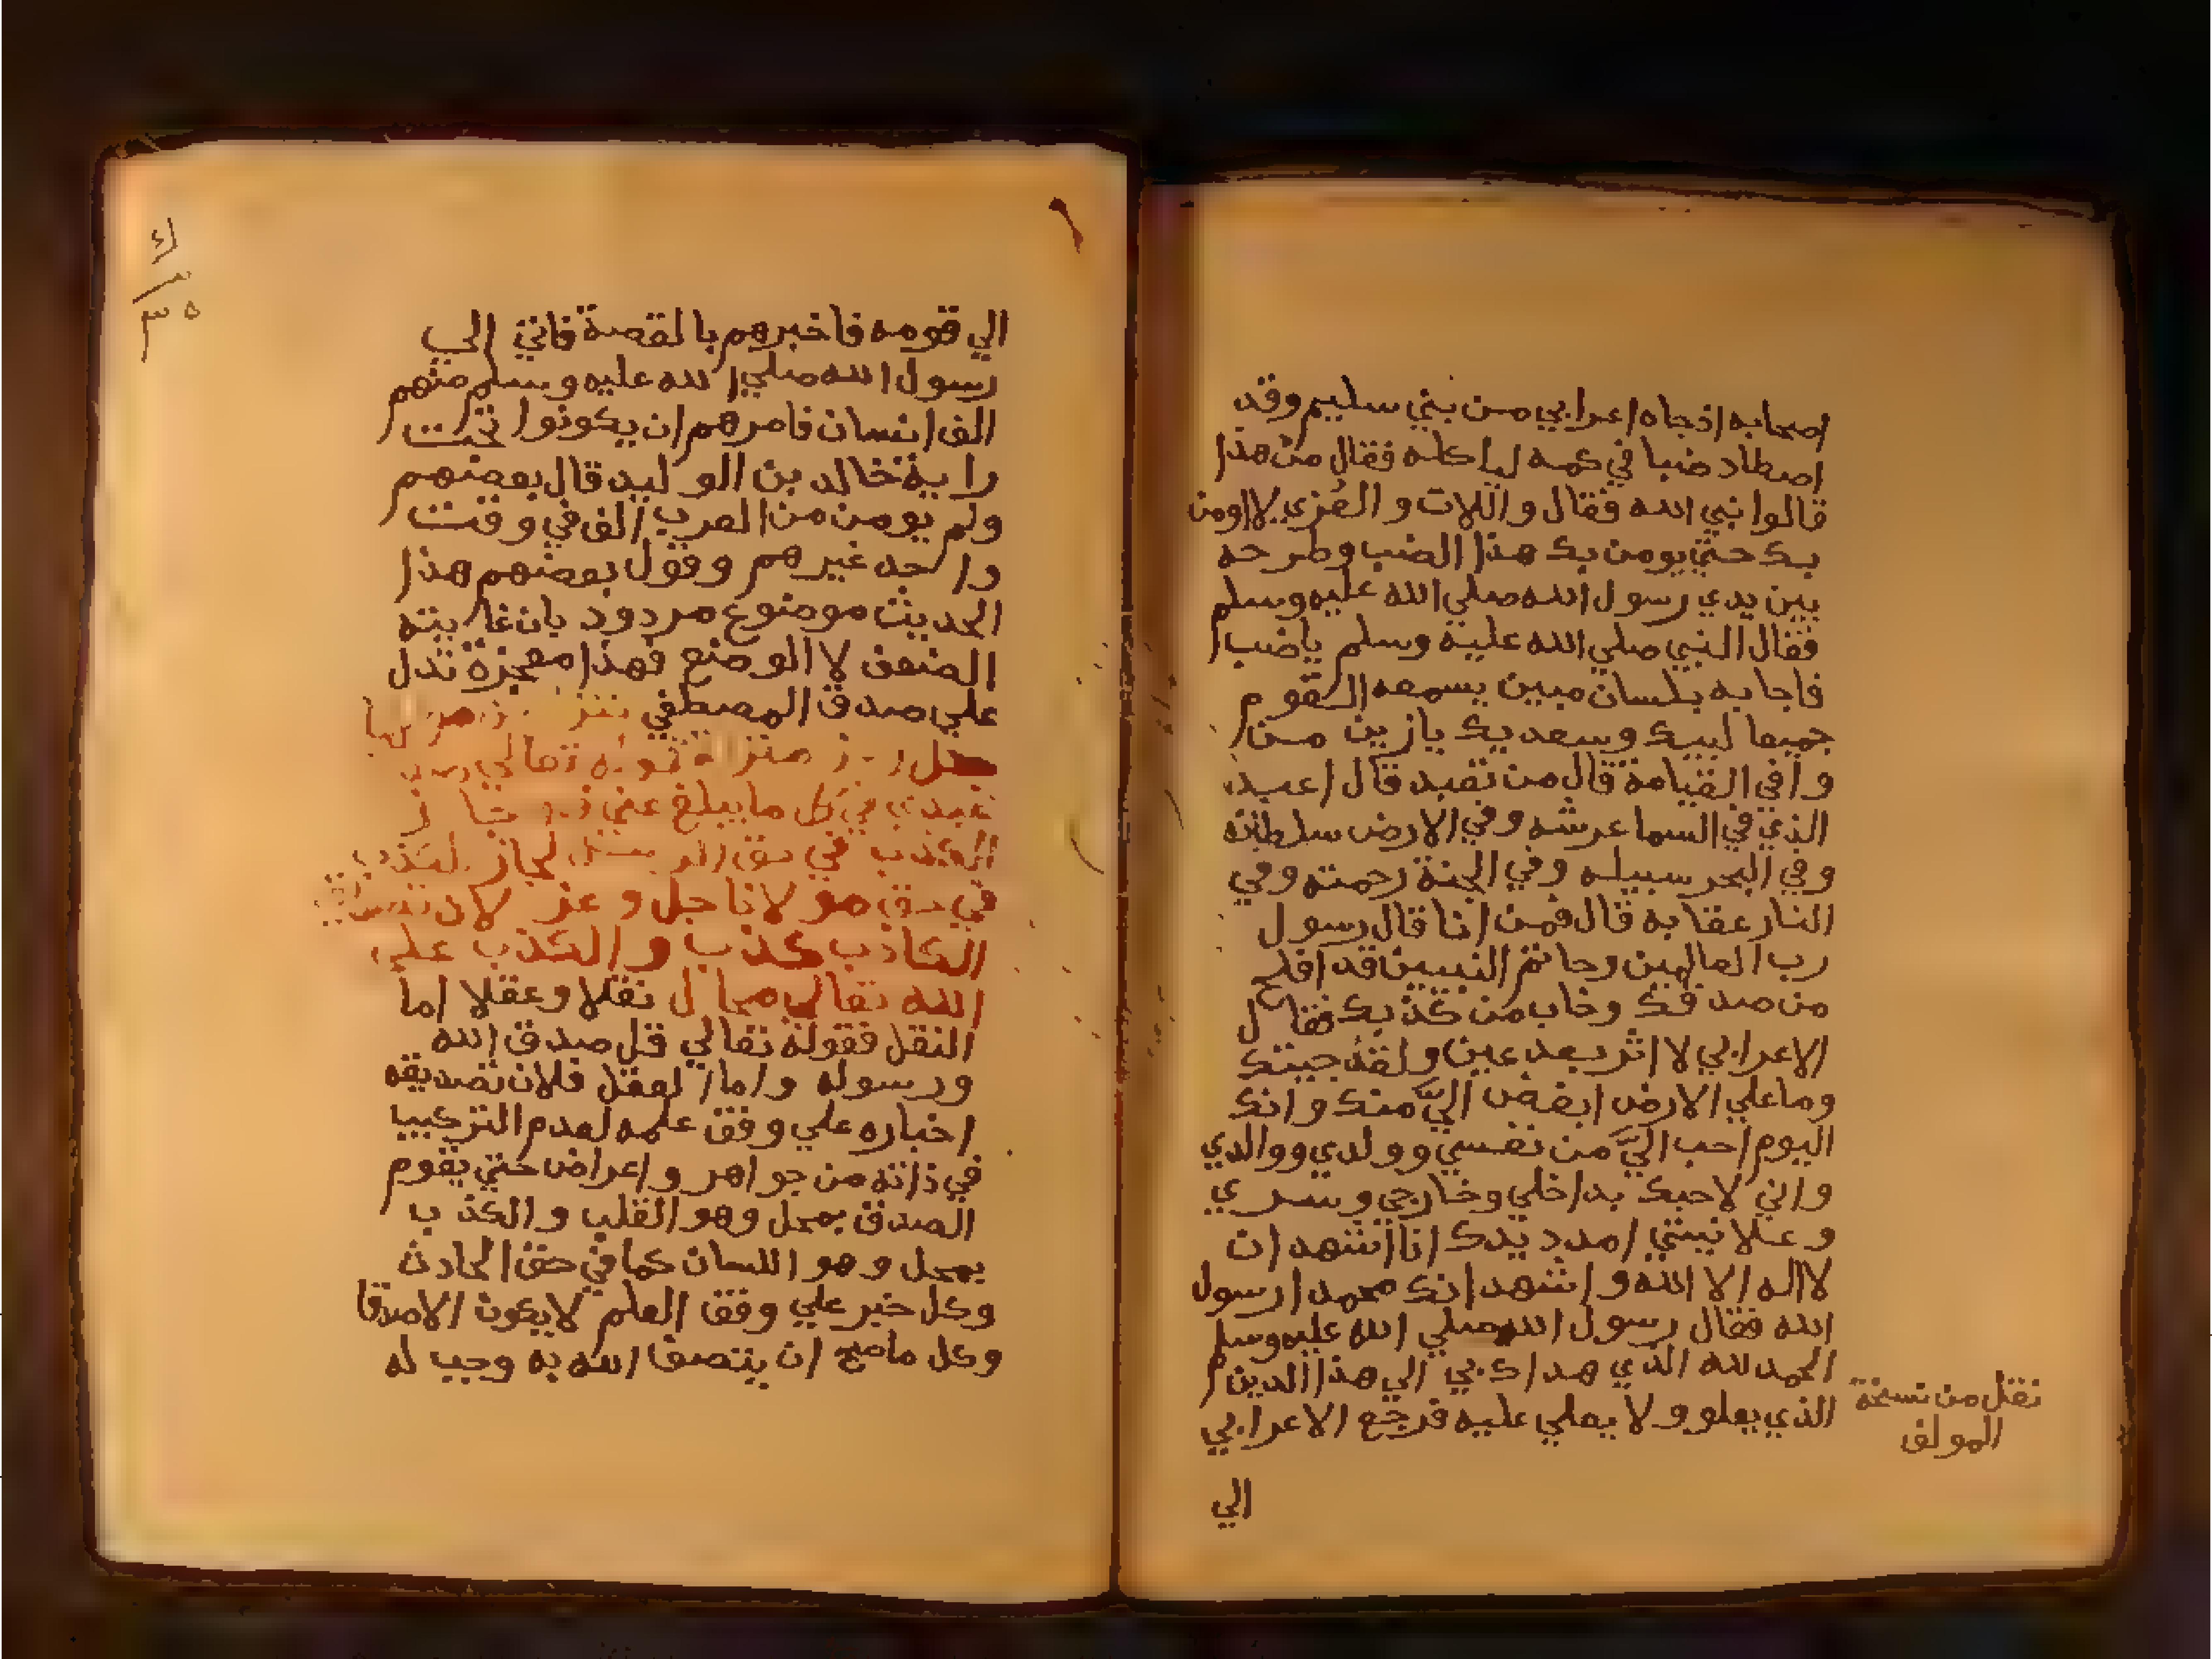 اصحابه اذجاه اعرابي من بني سليم وقد
اصطاد ضبا في كمه لياكله فقال من هذا
قالوا نبي الله فقال واللات والعُزي لا اومن
بك حتي يومن بك هذا الضب وطرحه
بين يدي رسول الله صلي الله عليه وسلم
فقال النبي صلي الله عليه وسلم ياضب
فاجابه بلسان مبين يسمعه القوم
جميعا لبيك وسعديك يازين من
وافي القيامة قال من تعبد قال اعبد
الذي في السما عرشه وفي الارض سلطانه
وفي البحر سبيله وفي الجنة رحمته وفي
النار عقابه قال فمن انا قال رسول
رب العالمين وخاتم النبيين قد افلح
من صدقك وخاب من كذبك فقال
الاعرابي لا اثر بعد عين ولقد جيتك
وما علي الارض ابغض اليَّ منك وانك
اليوم احب اليَّ من نفسي وولدي ووالدي
واني لاحبك بداخلي وخارجي وسري
وعلانيتي امدد يدك انا اشهد ان
لا اله الا الله واشهد انك محمد ارسول
الله فقال رسول الله صلي الله عليه وسلم
الحمد لله الذي هداك بي الي هذا الدين
الذي يعلو ولا يعلي عليه فرجع الاعرابي
نقل من نسخة
المولف
الي
الي قومه فاخبرهم بالقصة فاتي الي
رسول الله صلي الله عليه وسلم منهم
الف انسان فامرهم ان يكونوا تحت
راية خالد بن الوليد قال بعضهم
ولم يومن من العرب الف في وقت
واحد غيرهم وقول بعضهم هذا
الحديث موضوع مردود بان غايته
الضعف لا الوضع فهذا معجزة تدل
علي صدق المصطفي
تعالي
عبدي في كل ما يبلغ عني
الكذب في حق لجاز
في حق مولانا جل وعز لان
الكاذب كذب والكذب علي
الله تعالي محال نقلا وعقلا اما
النقل فقوله تعالي قل صدق الله
ورسوله واما العقل فلان تصديقه
اخباره علي وفق علمه لعدم التركيب
في ذاته من جواهر واعراض حتي يقوم
الصدق بمحل وهو القلب والكذب
بمحل وهو اللسان كما في حق الحادث
وكل خبر علي وفق العلم لا يكون الا صدقا
وكل ما صح ان يتصف الله به وجب له